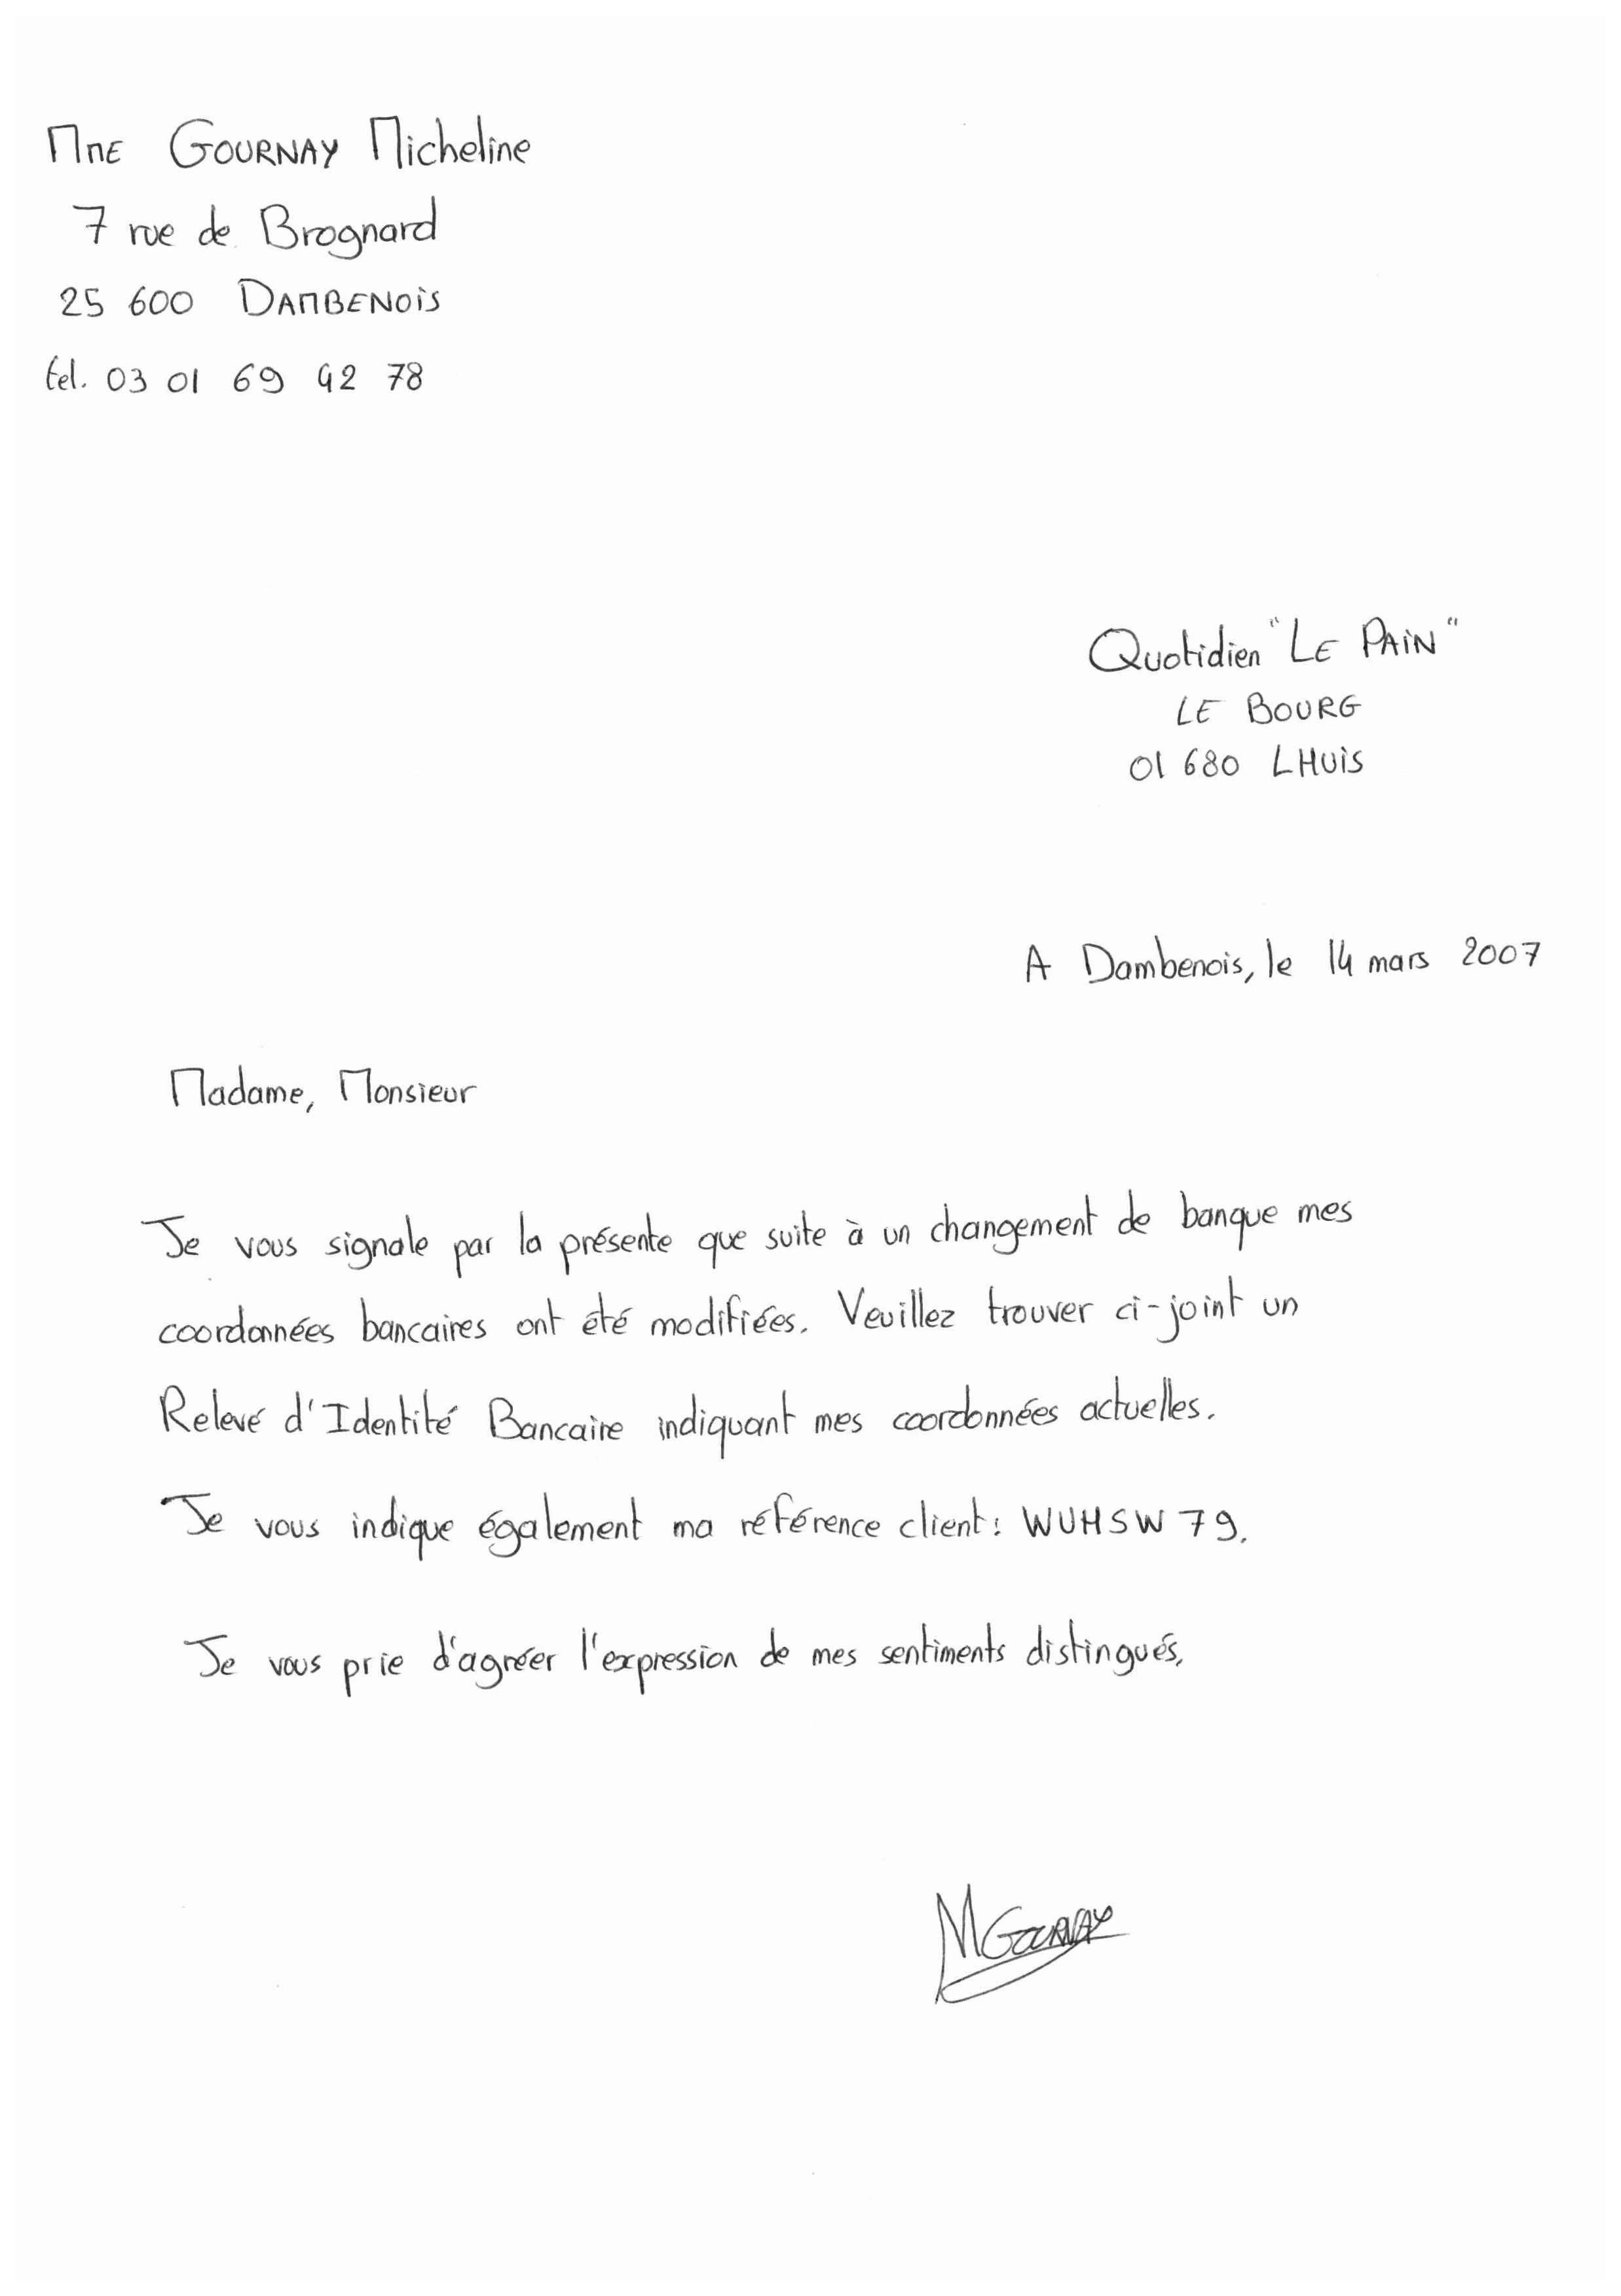 Mme GOURNAY Micheline
7 rue de Brognard
25 600 DAMBENOIS
tel. 03 01 69 42 78
Quotidien "LE PAIN"
LE BOURG
01 680 LHUIS
A Dambenois, le 14 mars 2007
Madame, Monsieur
Je vous signale par la présente que suite à un changement de banque mes
coordonnées bancaires ont été modifiées. Veuillez trouver ci-joint un
Relevé d'Identité Bancaire indiquant mes coordonnées actuelles.
Je vous indique également ma référence client : WUHSW 79.
Je vous prie d'agréer l'expression de mes sentiments distingués.
MGOURNAY